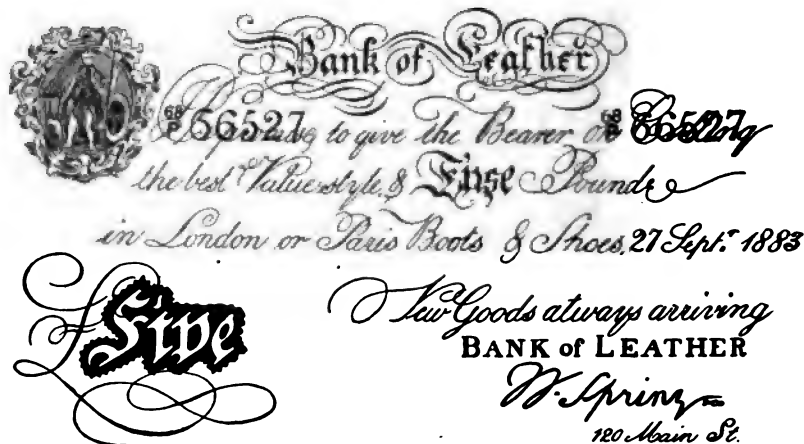 Bank of Leather
68/P 66527 to give the Bearer 68/P 66527
the best Value style, &
in London or Paris Boots & Shoes. 27 Sept. 1883
Five
New Goods always arriving
BANK of LEATHER
W. Spring
120 Main St.